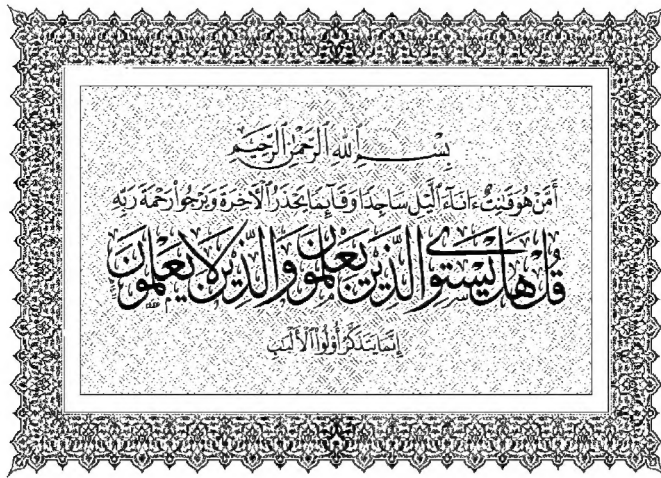 بِسْمِ ٱللَّهِ ٱلرَّحْمَٰنِ ٱلرَّحِيمِ
أَمَّنْ هُوَ قَٰنِتٌ ءَانَآءَ ٱلَّيْلِ سَاجِدًا وَقَآئِمًا يَحْذَرُ ٱلْءَاخِرَةَ وَيَرْجُوا۟ رَحْمَةَ رَبِّهِ
قُلْ هَلْ يَسْتَوِى الَّذِينَ يَعْلَمُونَ وَالَّذِينَ لَا يَعْلَمُونَ
إِنَّمَا يَتَذَكَّرُ أُو۟لُوا۟ ٱلْأَلْبَٰبِ